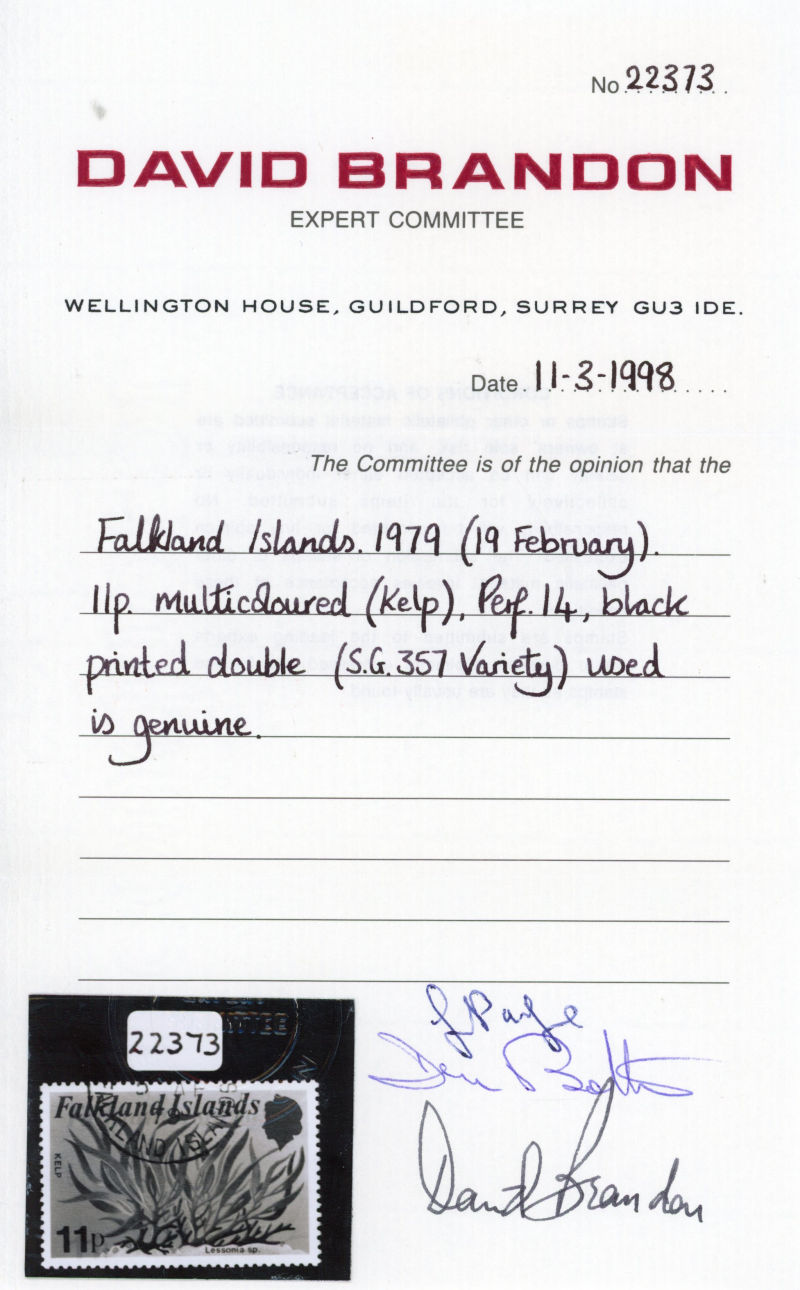 No 22373
DAVID BRANDON
EXPERT COMMITTEE
WELLINGTON HOUSE, GUILDFORD, SURREY GU3 1DE.
Date. 11-3-1998
The Committee is of the opinion that the
Falkland Islands. 1979 (19 February).
11p. multicoloured (Kelp), Perf. 14, black
printed double (S.G. 357 Variety) used
is genuine.
22373
Falkland Islands
FALKLAND ISLANDS
KELP
11p
Lessonia sp.
David Brandon